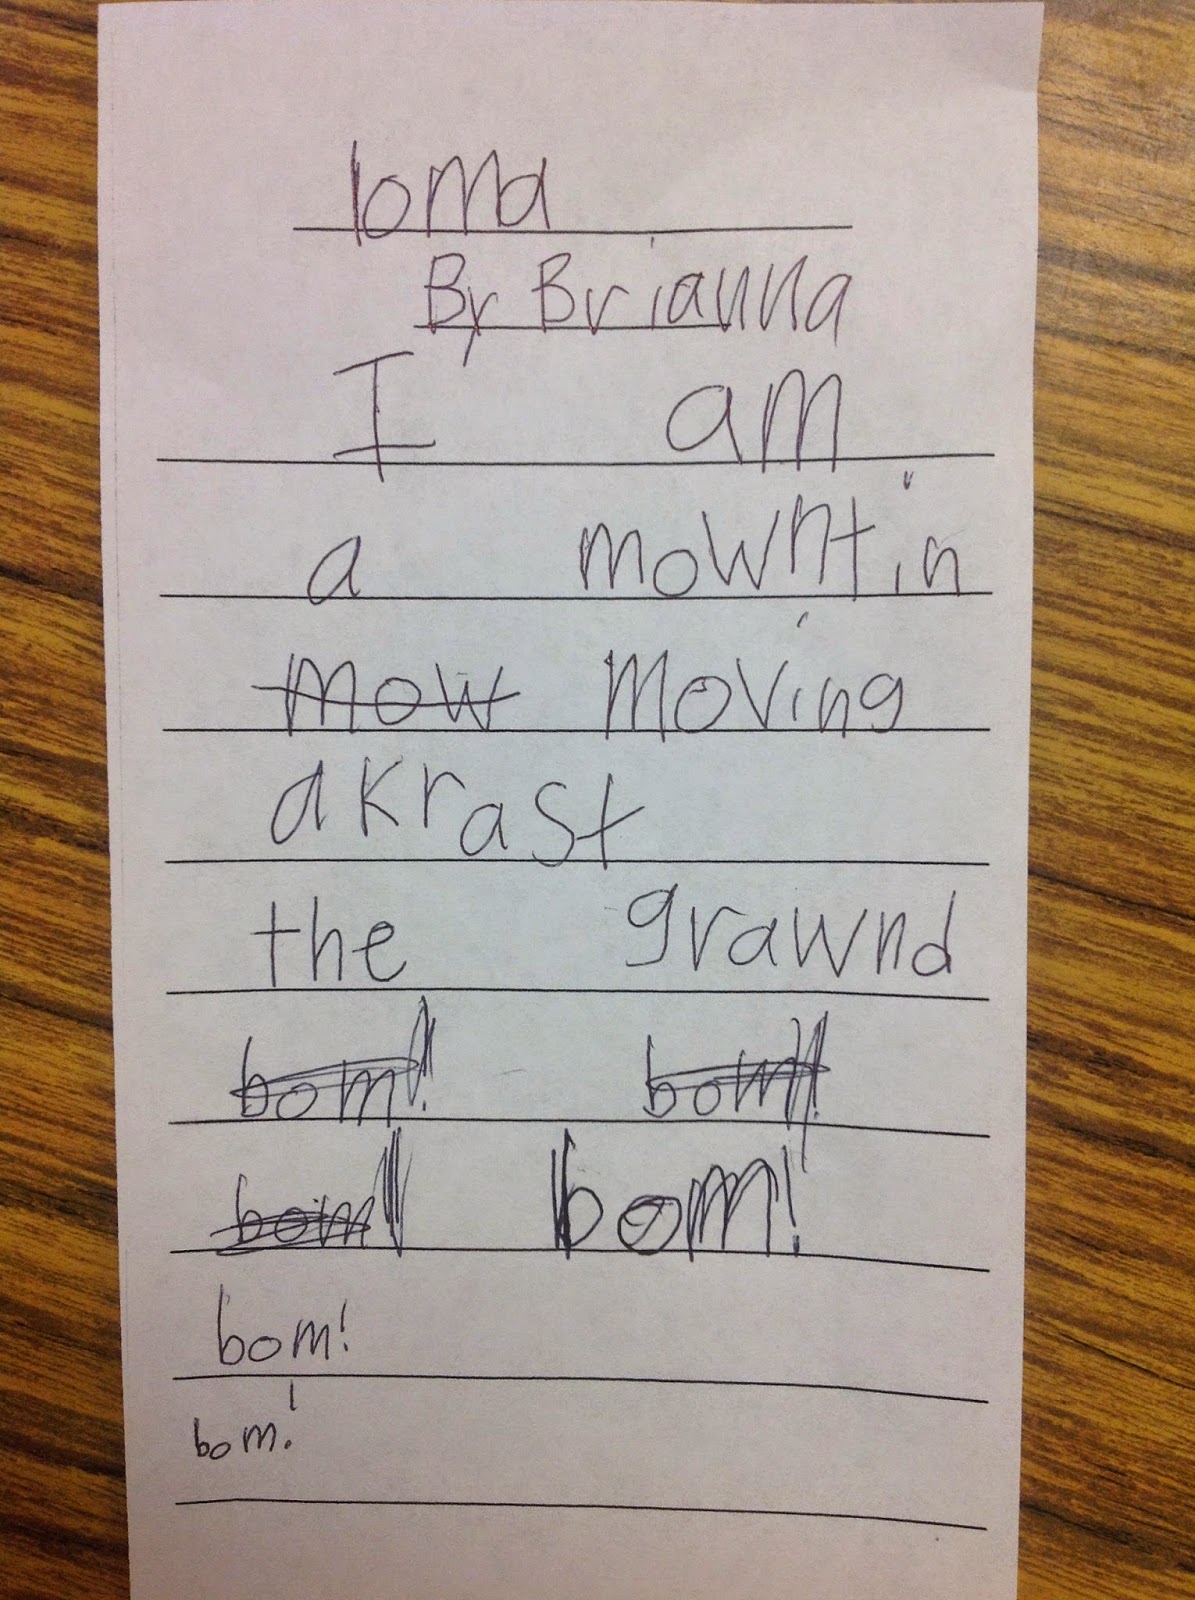 loma
By Brianna
I am
a mowntin
mow moving
akrast
the grawnd
bom! bom!
bom! bom!
bom!
bom!